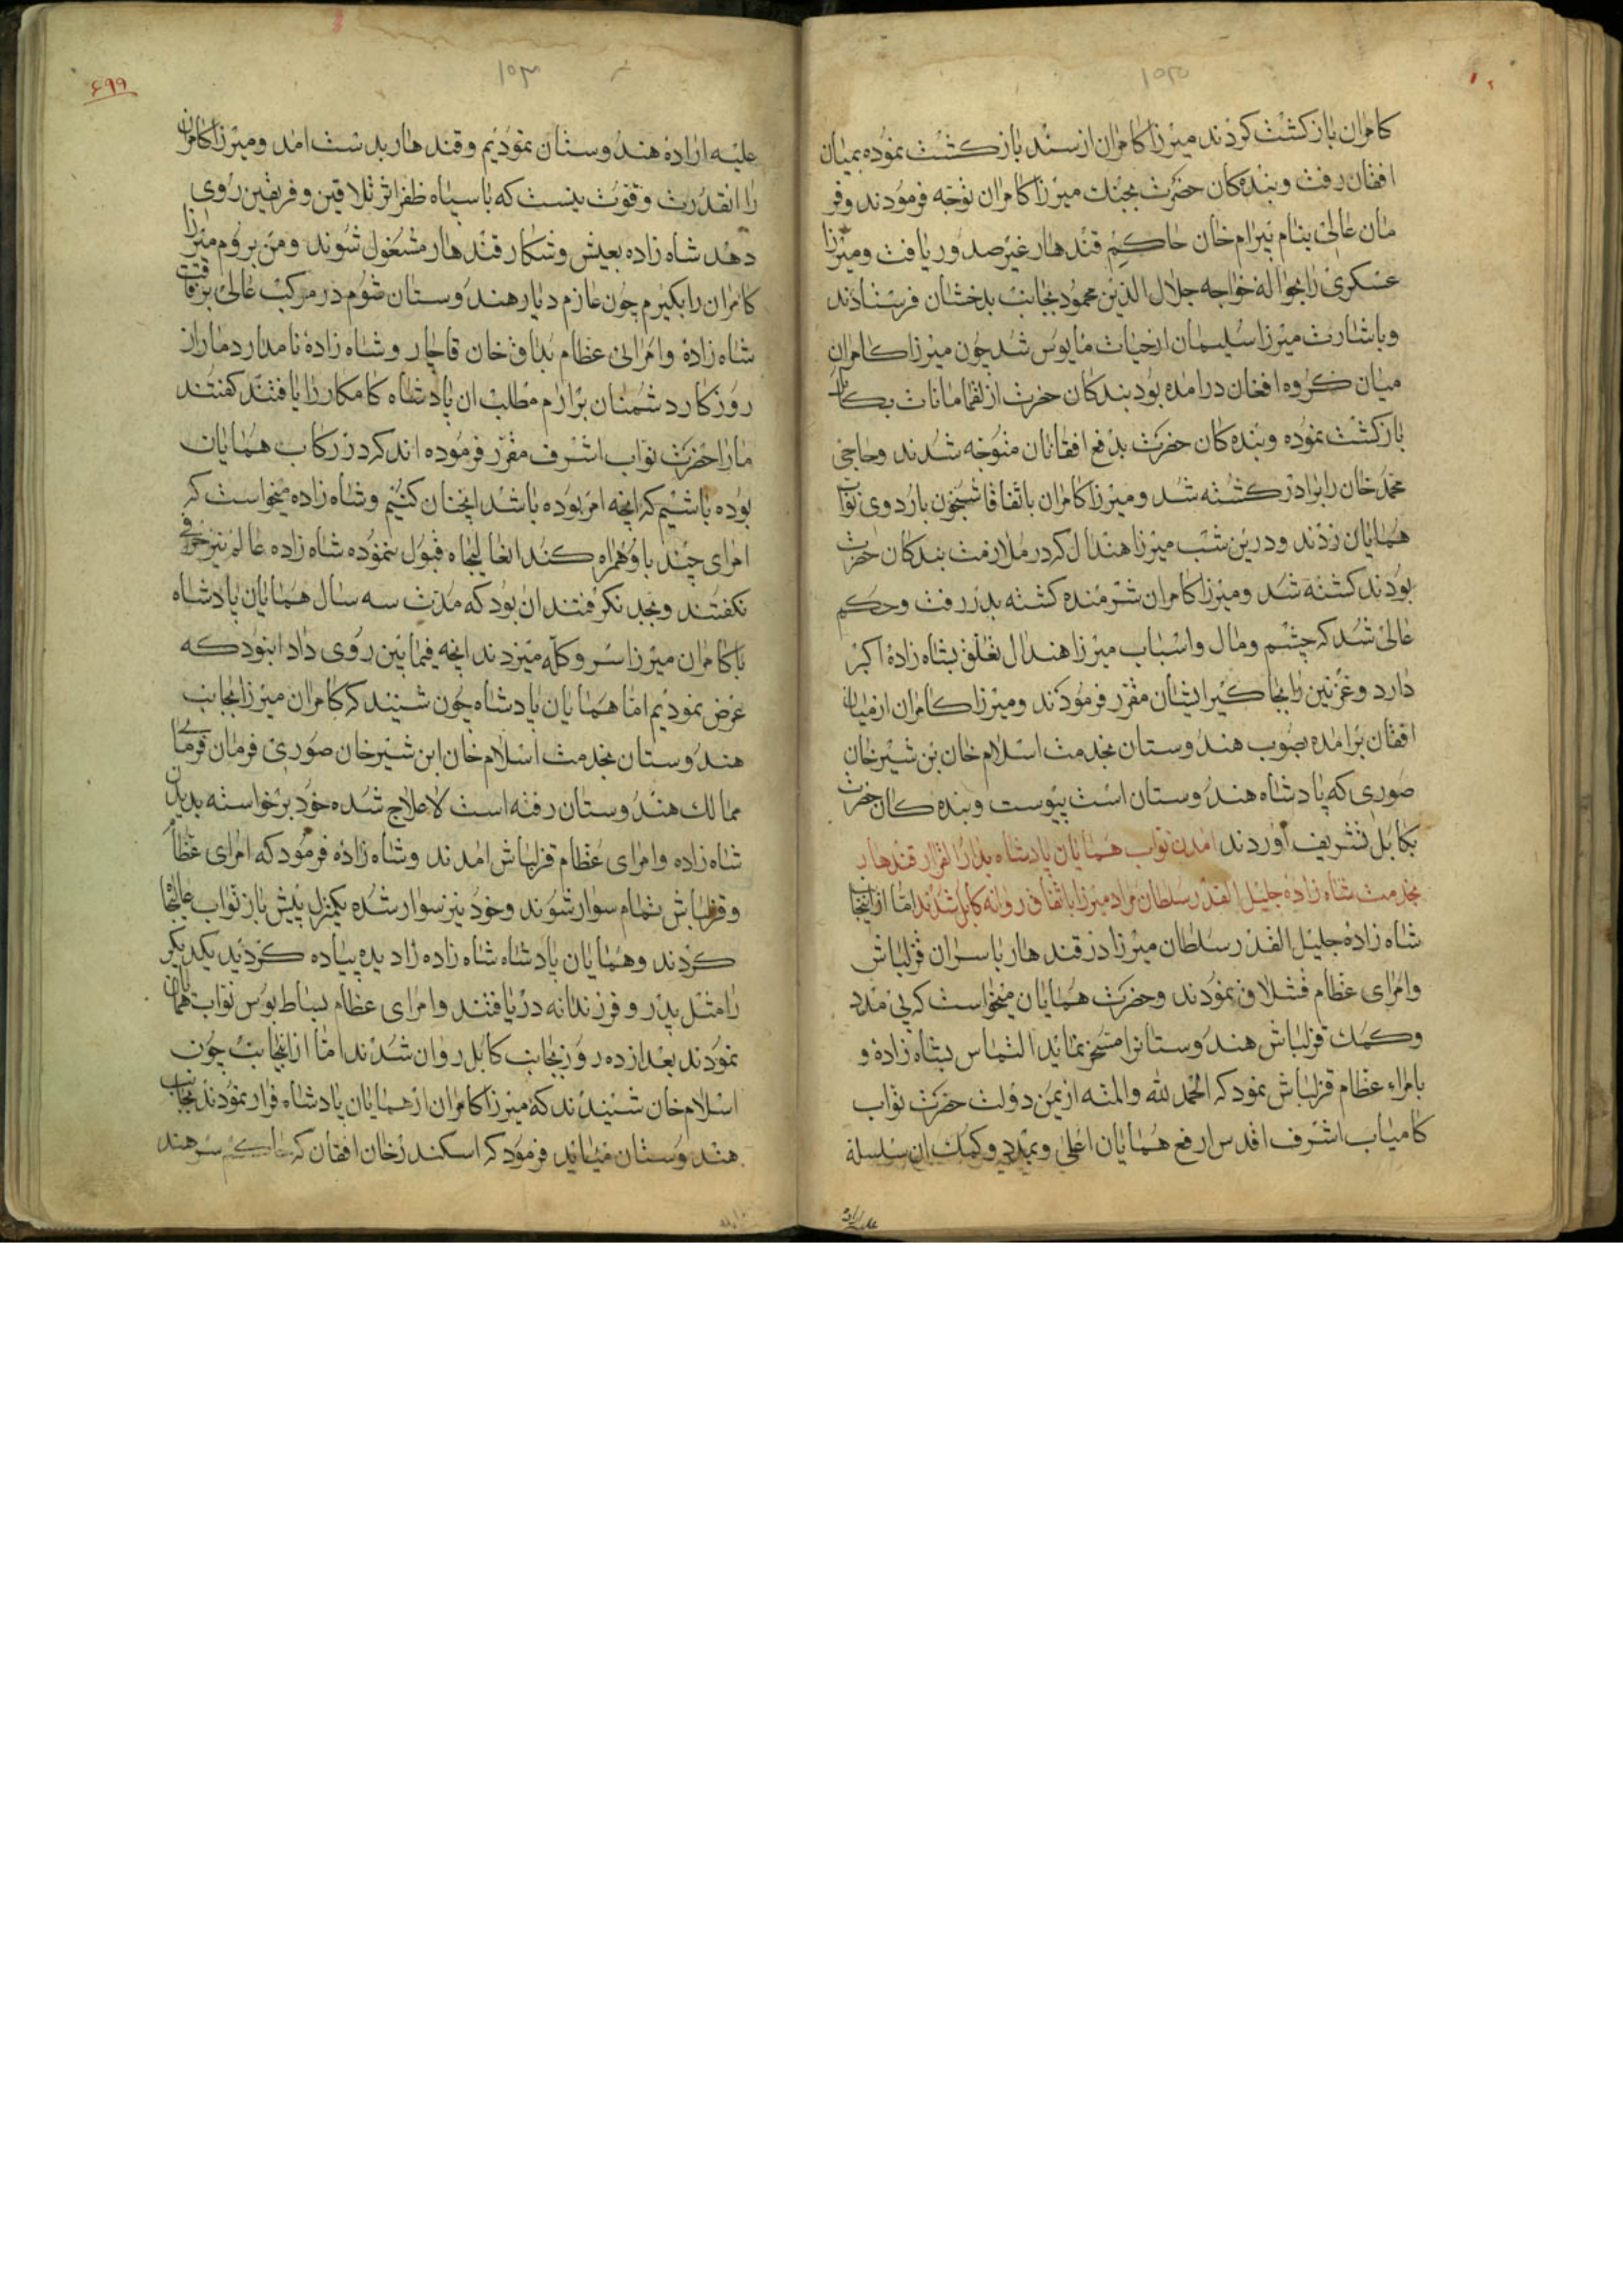 کامران بازکشت کردند میرزا کامران از سند بازکشت نموده بمیان
افقان رفت و بنده کان حضرت بجنک میرزا کامران توجه فرمودند و فر
مان عالی بنام بیرام خان حاکم قندهار غیر صدور یافت و میرزا
عسکری را بحواله خواجه جلال الدین محمود بجانب بدخشان فرستادند
و باشارت میرزا سلیمان از حیات مایوس شد چون میرزا کامران
میان کروه افغان درامده بود بندکان حضرت از
بازکشت نموده و بنده کان حضرت بدفع افقانان متوجه شدند و حاجی
محمد خان را برادر کشته شد و میرزا کامران باتفاقا شبخون باردوی نواب
همایان زدند و درین شب میرزا هندال که در ملازمت بندکان حضرت
بودند کشته شد و میرزا کامران شرمنده کشته بدر رفت و حکم
عالی شد که چشم و مال و اسباب میرزا هندال تعلق بشاه زاده اکبر
دارد و غزنین را بجا کیر ایشان مقرر فرمودند و میرزا کامران از میان
افقان برامده بصوب هندوستان بخدمت اسلام خان بن شیرخان
صوری که پادشاه هندوستان است پیوست و بنده کان حضرت
بکابل تشریف اوردند امدن نواب همایان پادشاه بدارالقرار قندهار
بخدمت شاه زاده جلیل القدر سلطان مراد میرزا باتفاق روانه کابل شدند اما از اینجانب
شاه زاده جلیل القدر سلطان میرزا در قندهار باسران قزلباش
و امرای عظام قشلاق نمودند و حضرت همایان میخواست که بی مدد
و کمک قزلباش هندوستانرا مسخر نماید التماس بشاه زاده و
بامراء عظام قزلباش نمود که الحمد لله والمنه از یمن دولت حضرت نواب
کامیاب اشرف اقدس ارفع همایان اعلی و بمدد و کمک ان سلسله
۶۹۹
علیه اراده هندوستان نمودیم و قندهار بدست امد و میرزا کامران
را انقدرت و قوت نیست که با سپاه ظفر اثر تلاقین و فریقین روی
دهد شاه زاده بعیش و شکار قندهار مشغول شوند و من بروم میرزا
کامران را بکیرم چون عازم دیار هندوستان شوم در مرکب عالی برفاقت
شاه زاده و امرالی عظام بداق خان قاجار و شاه زاده نامدار دمار از
روزکار دشمنان برارم مطلب ان پادشاه کامکار را یافتند کفتند
مارا حضرت نواب اشرف مقرر فرموده اند که در رکاب همایان
بوده باشیم که انچه امر بوده باشد انچنان کنیم و شاه زاده میخواست که
امرای چند باو همراه کند انعالیجاه قبول ننموده شاه زاده عالم نیز حرفی
نکفتند و بجد نکرفتند ان بود که مدت سه سال همایان پادشاه
با کامران میرزا سر و کله میزدند انچه فیمابین روی داد انبود که
عرض نمودیم اما همایان پادشاه چون شنیند که کامران میرزا بجانب
هندوستان بخدمت اسلام خان ابن شیرخان صوری فرمان فرمای
ممالک هندوستان رفته است لاعلاج شده خود برخواسته بدیدن
شاه زاده و امرای عظام قزلباش امدند و شاه زاده فرمود که امرای عظام
و قزلباش تمام سوار شوند و خود نیز سوار شده یکمنزل پیش باز نواب عالیجاه
کردند و همایان پادشاه شاه زاده را دیده پیاده کردید یکدیکر
را مثل پدر و فرزندانه دریافتند و امرای عظام بساط بوس نواب همایان
نمودند بعد از ده روز بجانب کابل روان شدند اما از اینجانب چون
اسلام خان شنیدند که میرزا کامران از همایان پادشاه فرار نمودند بجانب
هندوستان میاید فرمود که اسکندر خان افقان که حاکم سرهند